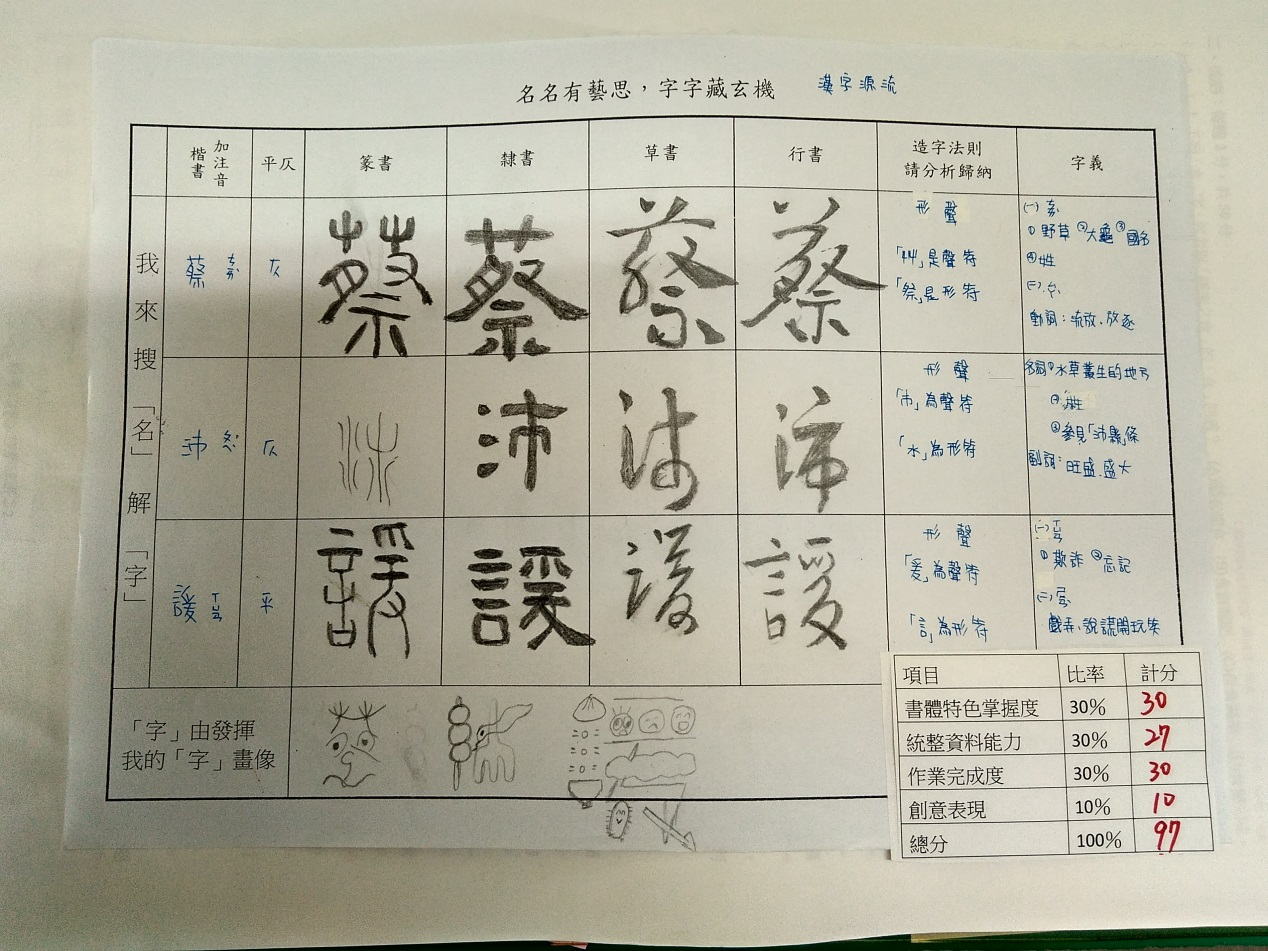 名名有藝思，字字藏玄機 漢字源流
楷書 加注音 平仄 篆書 隸書 草書 行書 造字法則 請分析歸納 字義
我來搜「名」解「字」
蔡 ㄘㄞˋ 仄 蔡 蔡 蔡 蔡
形聲
「艸」是聲符
「祭」是形符
㈠ ㄘㄞˋ
①野草 ②大龜 ③國名
④姓
㈡ ㄙㄚˋ
動詞：流放、放逐
沛 ㄆㄟˋ 仄 沛 沛 沛 沛
形聲
「巿」為聲符
「水」為形符
名詞①水草叢生的地方
②姓
③參見「沛縣」條
副詞：旺盛、盛大
諼 ㄒㄩㄢ 平 諼 諼 諼 諼
形聲
「爰」為聲符
「言」為形符
㈠ ㄒㄩㄢ
①欺詐 ②忘記
㈡
戲弄、說謊開玩笑
「字」由發揮
我的「字」畫像
項目 比率 計分
書體特色掌握度 30% 30
統整資料能力 30% 27
作業完成度 30% 30
創意表現 10% 10
總分 100% 97